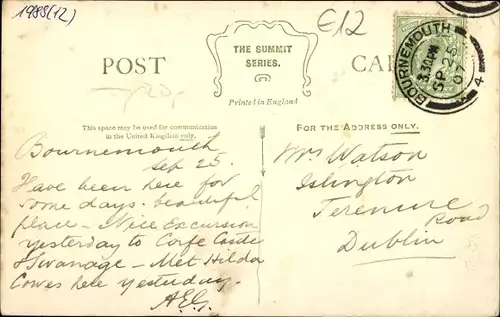 1988(12)
€12
THE SUMMIT
SERIES.
POST CA
Printed in England
BOURNEMOUTH
3.30 PM
SP 25
07
4
This space may be used for communication
in the United Kingdom only.
FOR THE ADDRESS ONLY.
Bournemouth
Sep 25.
Have been here for
some days. beautiful
place - Nice Excursion
yesterday to Corfe Castle
& Swanage - Met Hilda
Cowes here yesterday.
A.E.G.
Mrs Watson
Islington
Terenure
Road
Dublin